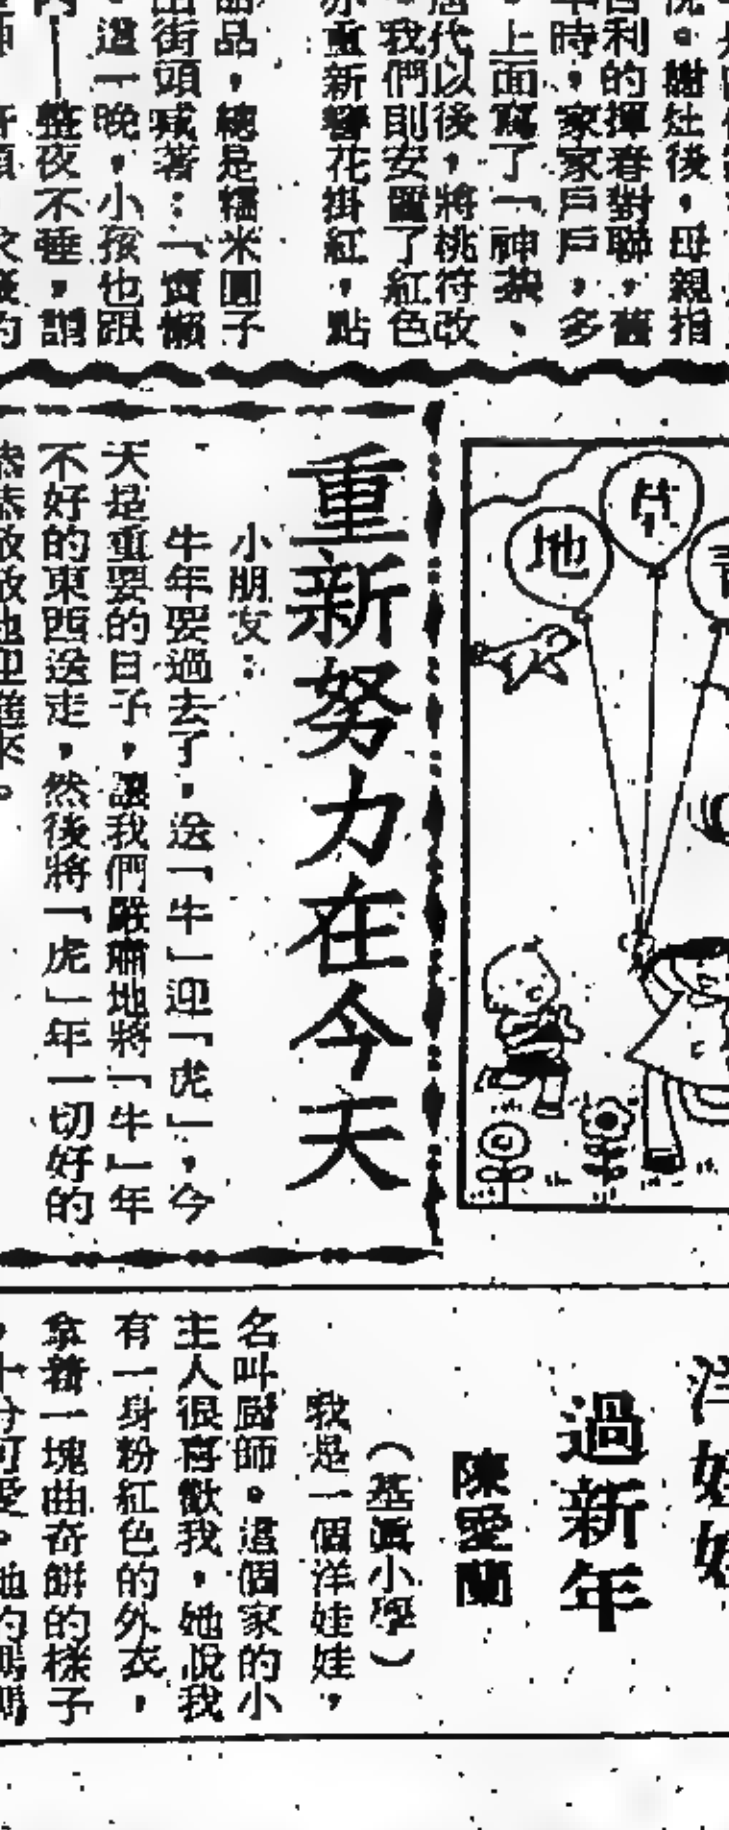 是
後。謝灶後,母親指
吉利的揮春對聯,舊
年時,家家戶戶,多
,上面寫了「神荼、
唐代以後,將桃符改
我們則安置了紅色
亦重新簪花掛紅,點
品,總是糯米圓子
出街頭喊著:「賣懶
,這一晚,小孩也跟
——整夜不睡,謂
青
草
地
重新努力在今天
小朋友:
牛年要過去了,送「牛」迎「虎」,今
天是重要的日子,讓我們嚴肅地將「牛」年
不好的東西送走,然後將「虎」年一切好的
恭恭敬敬地迎進來。
洋娃娃
過新年
陳愛蘭
(基真小學)
我是一個洋娃娃,
名叫廚師。這個家的小
主人很喜歡我,她說我
有一身粉紅色的外衣,
拿着一塊曲奇餅的樣子
,十分可愛。她的媽媽